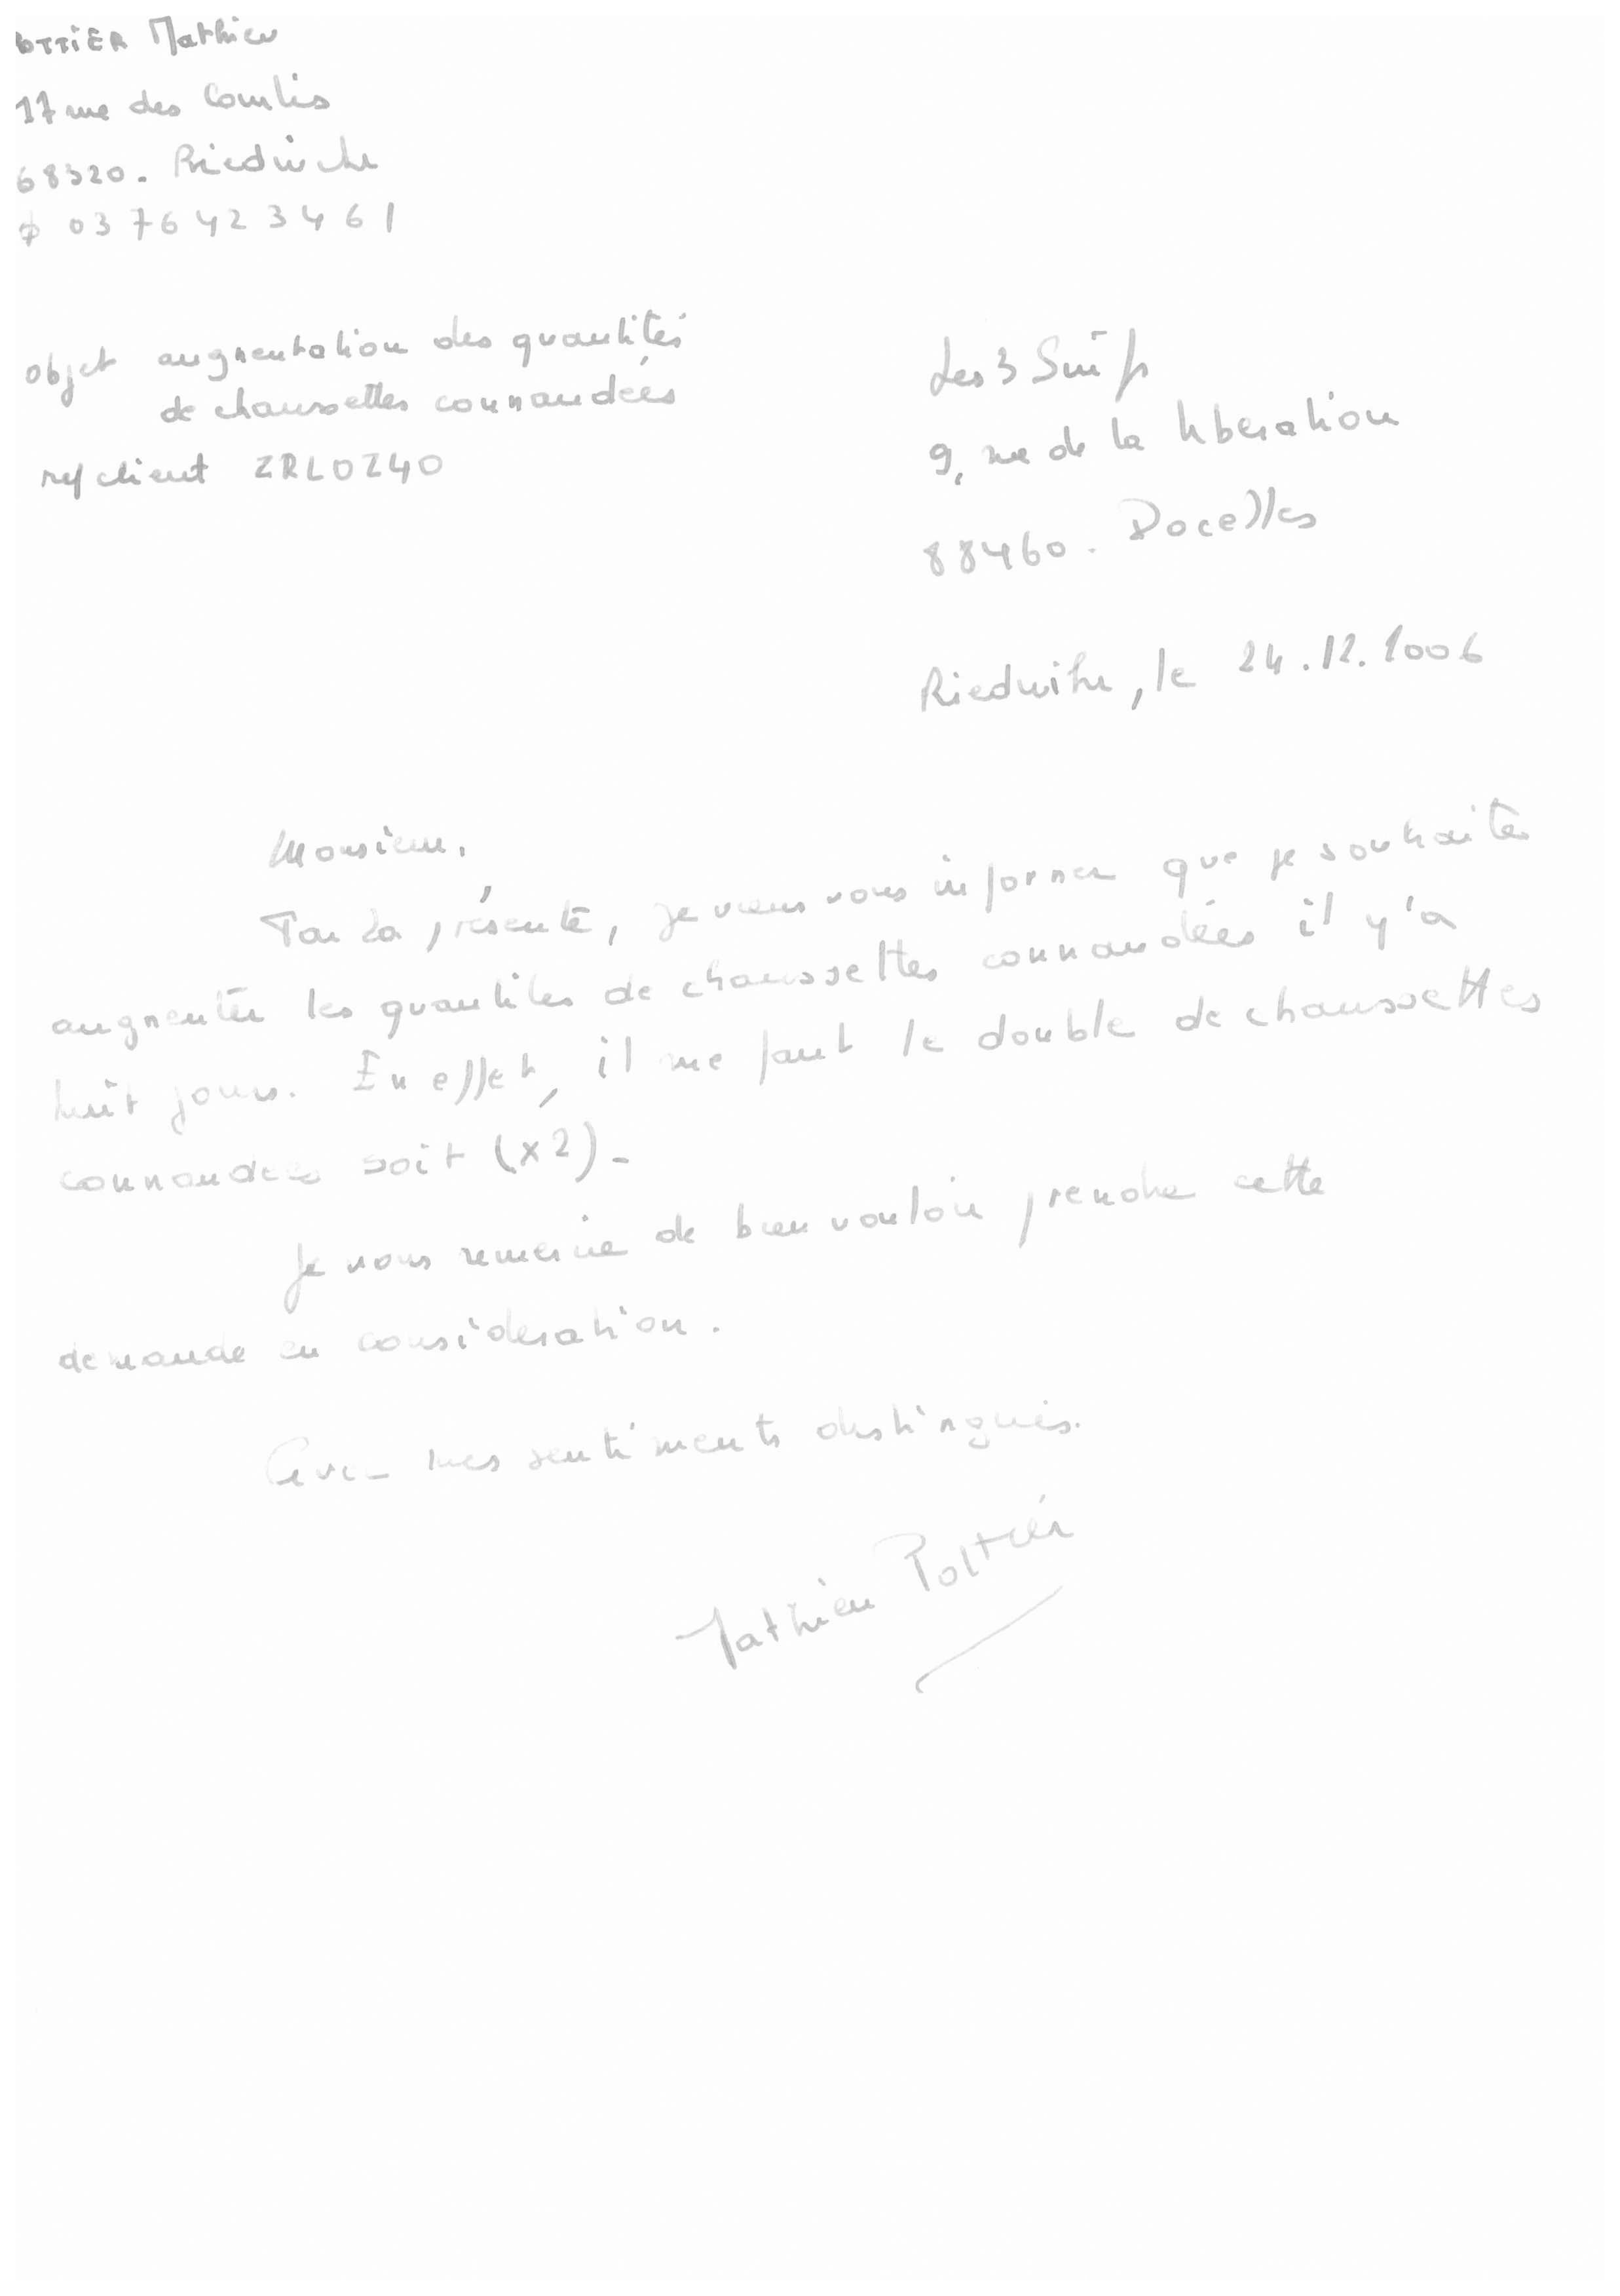 OTTIER Mathieu
17 rue des Coulis
68320. Riedwihr
03 76 42 34 61
objet augmentation des quantités
de chaussettes commandées
ref client ZRLOZ40
Les 3 Suifs
9, rue de la libération
88460. Docelles
Riedwihr, le 24.12.2006
Monsieur,
Par la présente, je viens vous informer que je souhaites
augmenter les quantités de chaussettes commandées il y'a
huit jours. En effet, il me faut le double de chaussettes
commandées soit (x2)-
Je vous remercie de bien vouloir prendre cette
demande en considération.
Avec mes sentiments distingués.
Mathieu Pottier